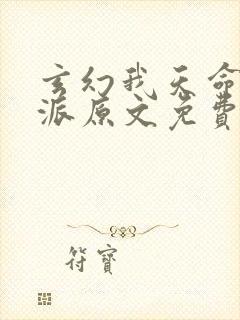 玄幻我天命
派原文免費
符寶